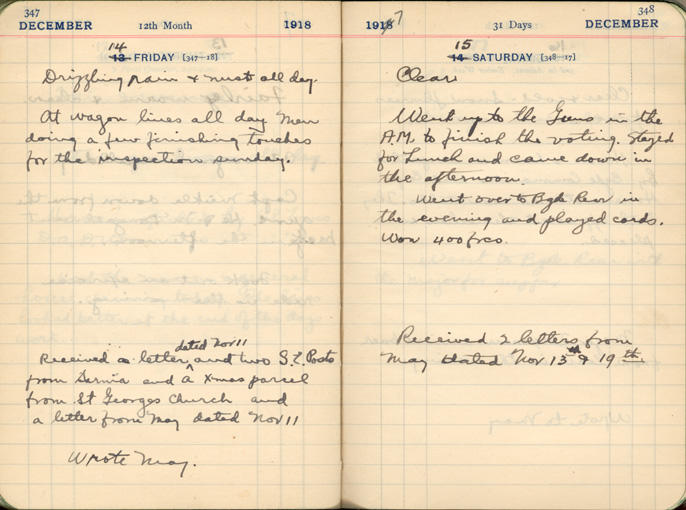 347
DECEMBER 12th Month 1918
14
13 FRIDAY [347–18]
Drizzling rain & mist all day.
At wagon lines all day men
doing a few finishing touches
for the inspection sunday.
dated Nov 11
Received a letter and two S.E. Posts
from and a Xmas parcel
from St Georges Church and
a letter from May dated Nov 11
Wrote May.
348
1917 31 Days DECEMBER
15
14 SATURDAY [348–17]
Clear
Went up to the Guns in the
A.M. to finish the voting. Stayed
for Lunch and came down in
the afternoon.
Went over to Bgde Rear in
the evening and played cards.
Won 400 frcs.
Received 2 letters from
May dated Nov 13th & 19th.